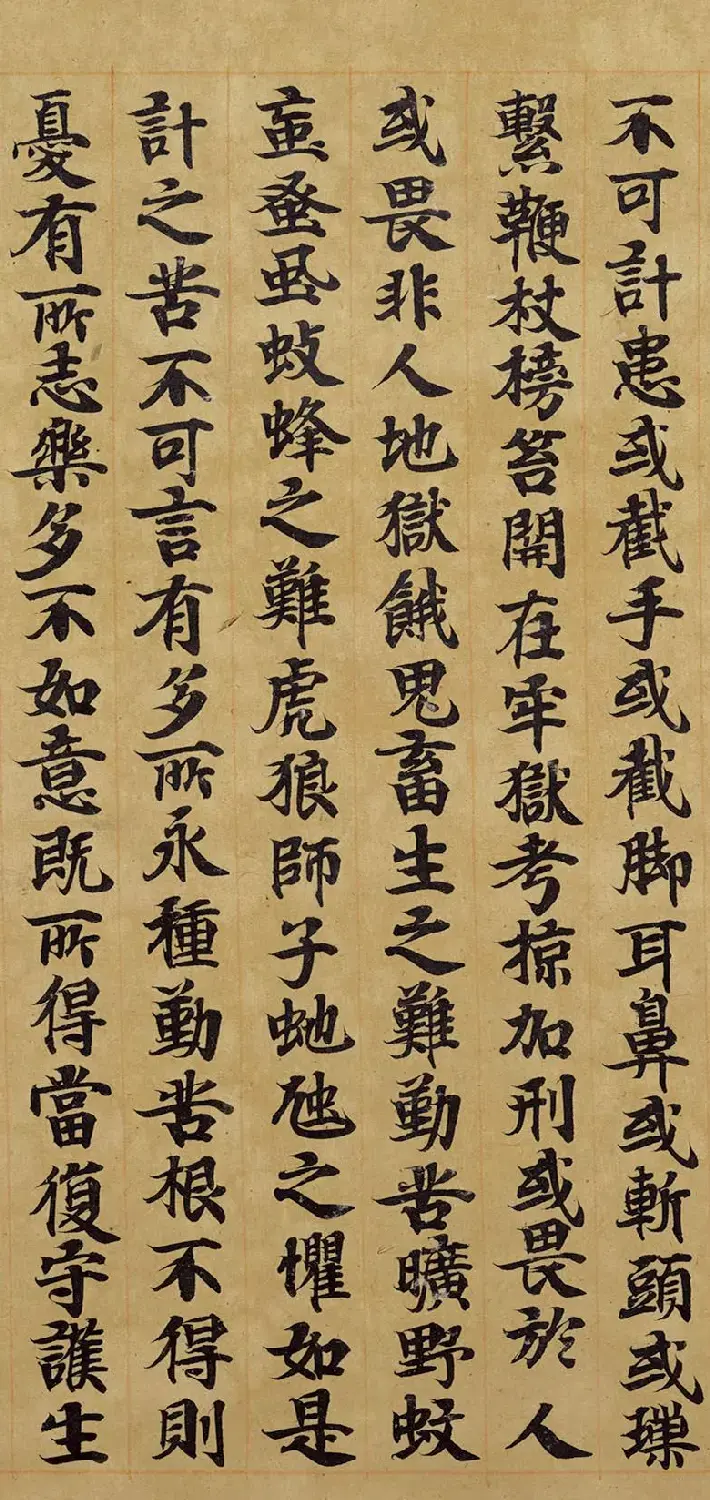 不可計患或截手或截脚耳鼻或斬頭或
繫鞭杖榜笞閇在牢獄考掠加刑或畏於人
或畏非人地獄餓鬼畜生之難勤苦曠野蚊
䖟蚤虱蚑蜂之難虎狼師子虵虺之懼如是
計之苦不可言有多所求種勤苦根不得則
憂有所志樂多不如意既所得當復守護生